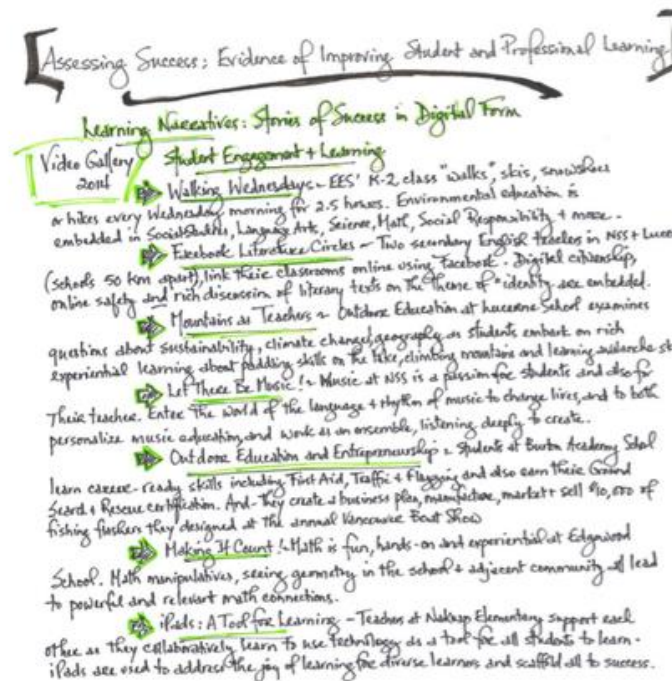 [Assessing Success: Evidence of Improving Student and Professional Learning]
Learning Narratives: Stories of Success in Digital Form
Video Gallery
2014
Student Engagement + Learning
Walking Wednesdays ~ EES' K-2 class "walks", skis, snowshoes
or hikes every Wednesday morning for 2.5 hours. Environmental education is
embedded in Social Studies, Language Arts, Science, Math, Social Responsibility + more.
Facebook Literature Circles ~ Two secondary English teachers in NSS + Lucerne
(schools 50 km apart), link their classrooms online using Facebook. Digital citizenship,
online safety and rich discussion of literary texts on the theme of "identity" are embedded.
Mountains as Teachers ~ Outdoor Education at Lucerne School examines
questions about sustainability, climate change, geography as students embark on rich
experiential learning about paddling skills on the lake, climbing mountains and learning avalanche
Let There Be Music! ~ Music at NSS is a passion for students and also for
their teacher. Enter the world of the language + rhythm of music to change lives, and to both
personalize music education, and work as an ensemble, listening deeply to create.
Outdoor Education and Entrepreneurship ~ Students at Burton Academy School
learn career-ready skills including First Aid, Traffic + Flagging, and also earn their Ground
Search + Rescue certification. And - they create a business plan, manufacture, market + sell $10,000 of
fishing flashers they designed at the annual Vancouver Boat Show
Making It Count! ~ Math is fun, hands-on and experiential at Edgewood
School. Math manipulatives, seeing geometry in the school + adjacent community all lead
to powerful and relevant math connections.
iPads: A Tool for Learning - Teachers at Nakusp Elementary support each
other as they collaboratively learn to use technology as a tool for all students to learn.
iPads are used to address the joy of learning for diverse learners and scaffold all to success.